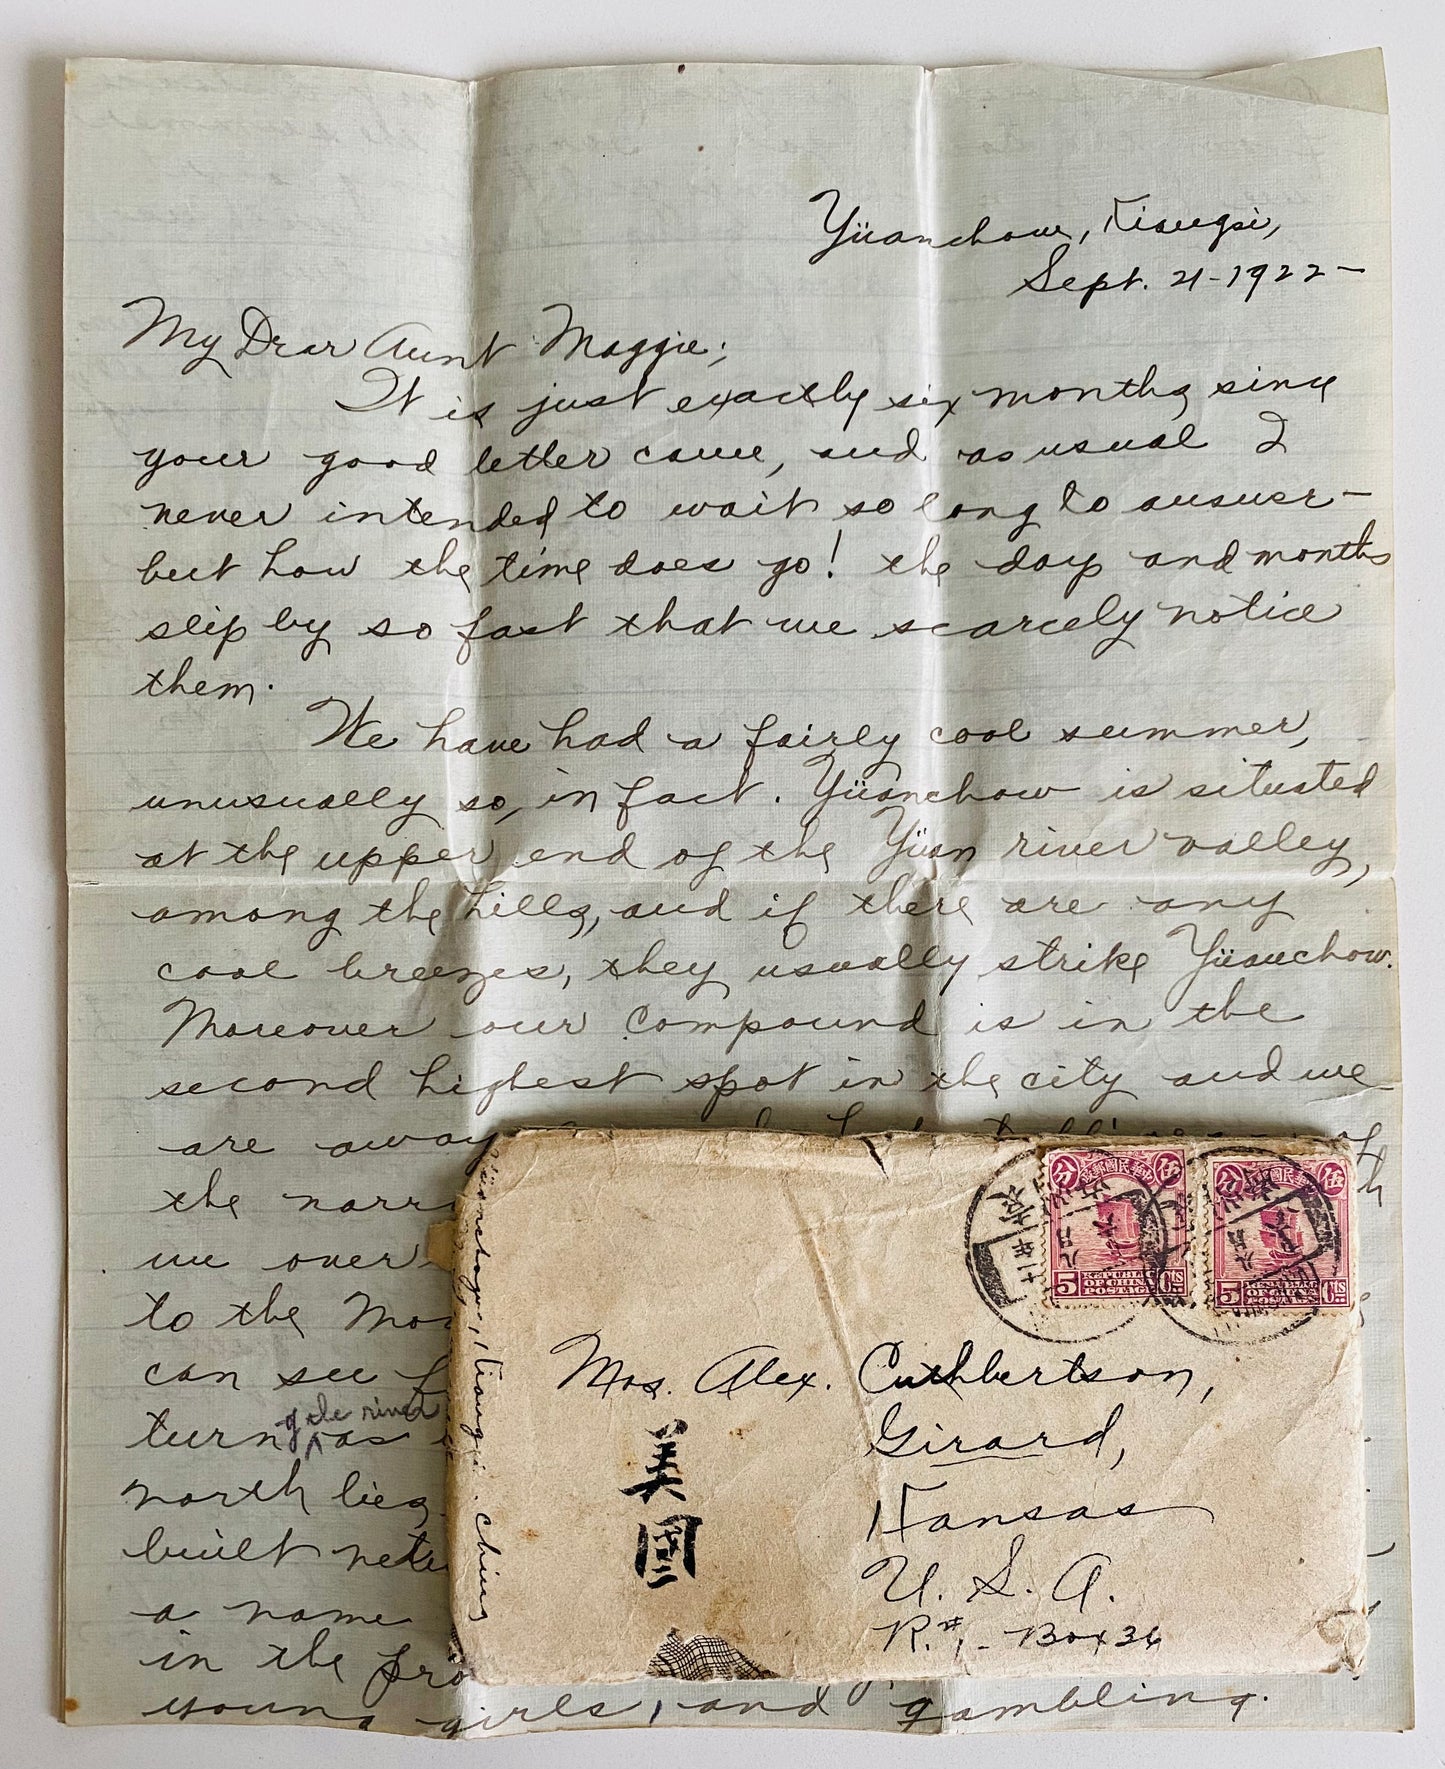 Yüanchow, Kiangsi,
Sept. 21-1922-
My Dear Aunt Maggie;
It is just exactly six months since
your good letter came, and as usual I
never intended to wait so long to answer-
but how the time does go! the days and months
slip by so fast that we scarcely notice
them.
We have had a fairly cool summer,
unusually so, in fact. Yüanchow is situated
at the upper end of the Yüan river valley,
among the hills, and if there are any
cool breezes, they usually strike Yüanchow.
Moreover our compound is in the
second highest spot in the city and we
are away
the narr
we over
to the Mo
can see f
of the river
turn as
north lies
built
a name
in the pro
young girls, and gambling.
Yüanchow, Kiangsi. China
中華民國郵政
分 伍
5 REPUBLIC OF CHINA POSTAGE CTS
中華民國郵政
分 伍
5 REPUBLIC OF CHINA POSTAGE CTS
Mrs. Alex. Cuthbertson,
Girard,
Kansas
U. S. A.
R.#1 - Box 36
美國